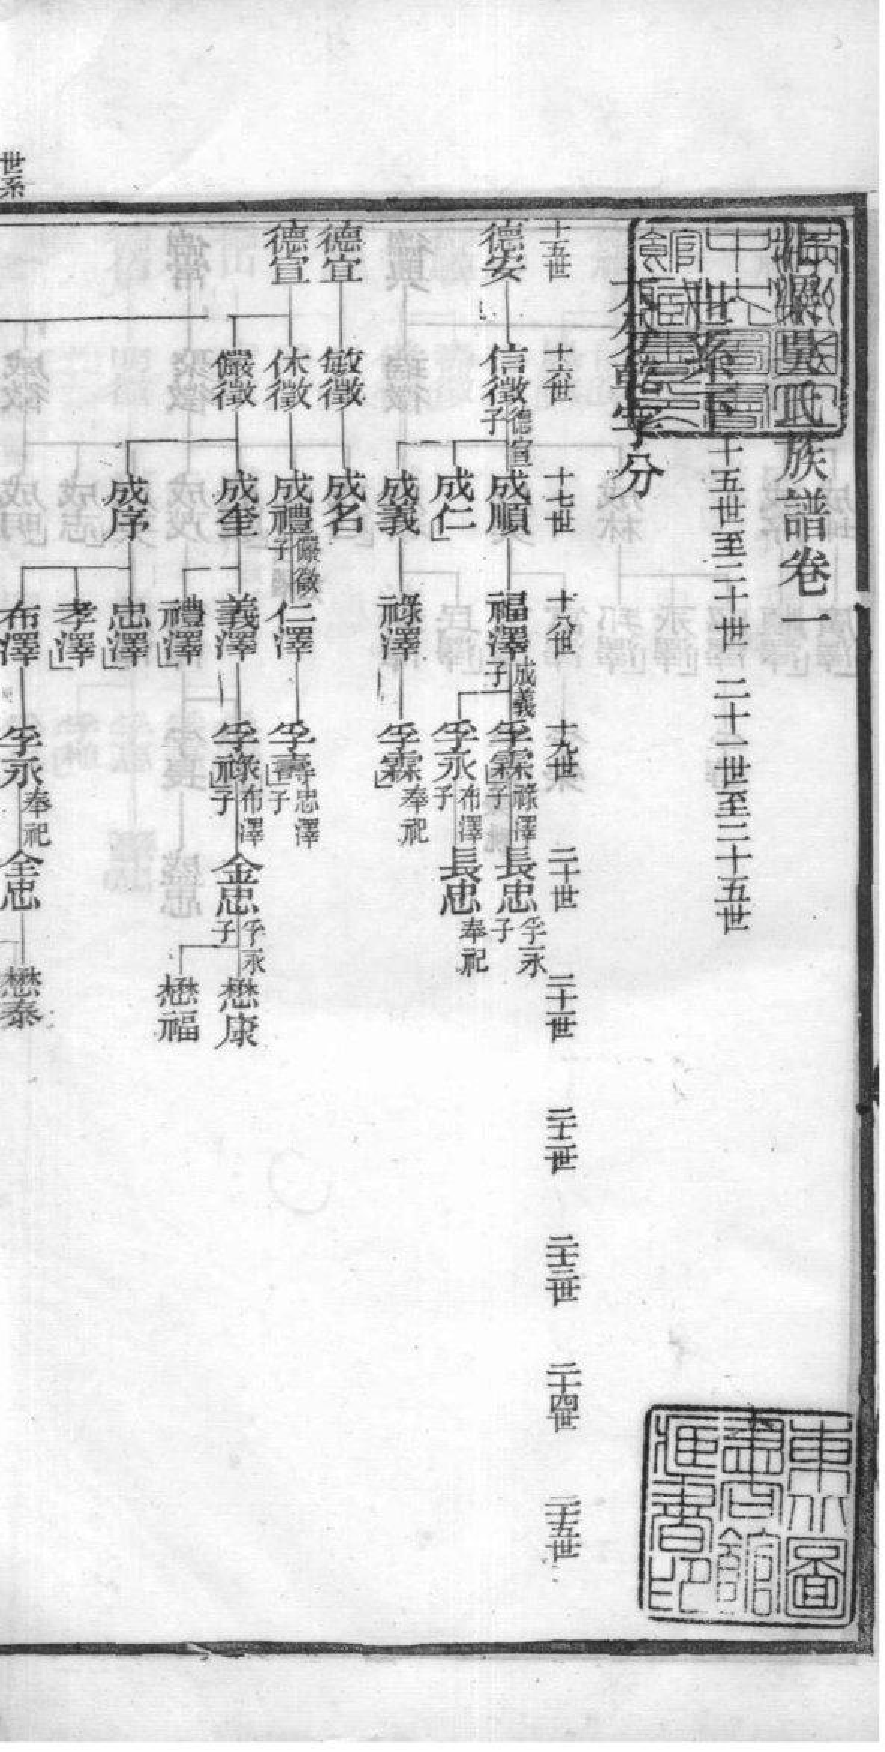 海澱吳氏族譜卷一
世系下 十五世至二十世 二十一世至二十五世
字分
十五世 十六世 十七世 十八世 十九世 二十世 二十一世 二十二世 二十三世 二十四世 二十五世
德安 信徵 德宣子 成順 福澤 成義子 孚霖 祿澤子 長忠 孚永子
成仁 孚永 布澤子 長忠 奉祀
成義 祿澤 孚霖 奉祀
德宣 敏徵 成名
德宣 休徵 成禮 儼徵子 仁澤 孚壽 忠澤子
儼徵 成奎 義澤 孚祿 布澤子 金忠 孚永子 懋康
禮澤 懋福
成序 忠澤
孝澤
布澤 孚永 奉祀 全忠 懋泰
世系